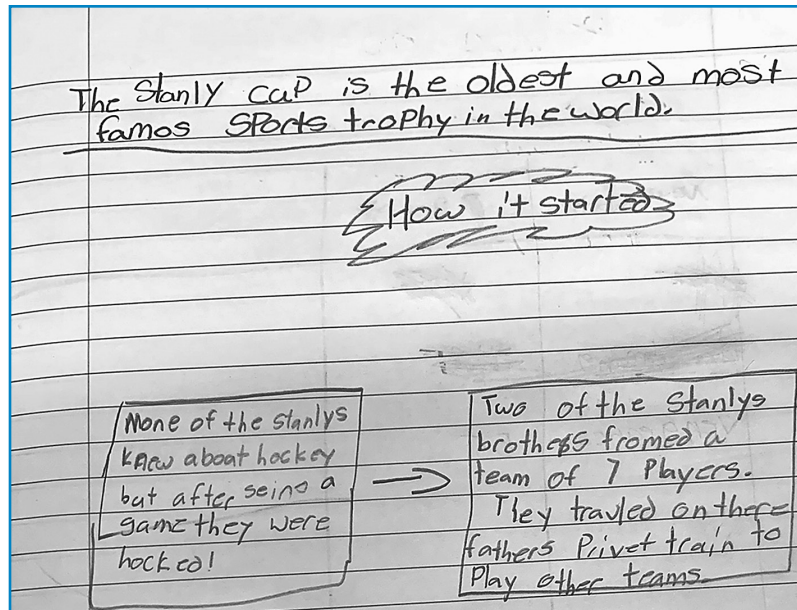 The Stanly cup is the oldest and most
famos sports trophy in the world.
How it started
None of the stanlys
knew aboat hockey
but after seing a
game they were
hocked!
Two of the Stanlys
brothers fromed a
team of 7 Players.
They travled on there
fathers Privet train to
Play other teams.